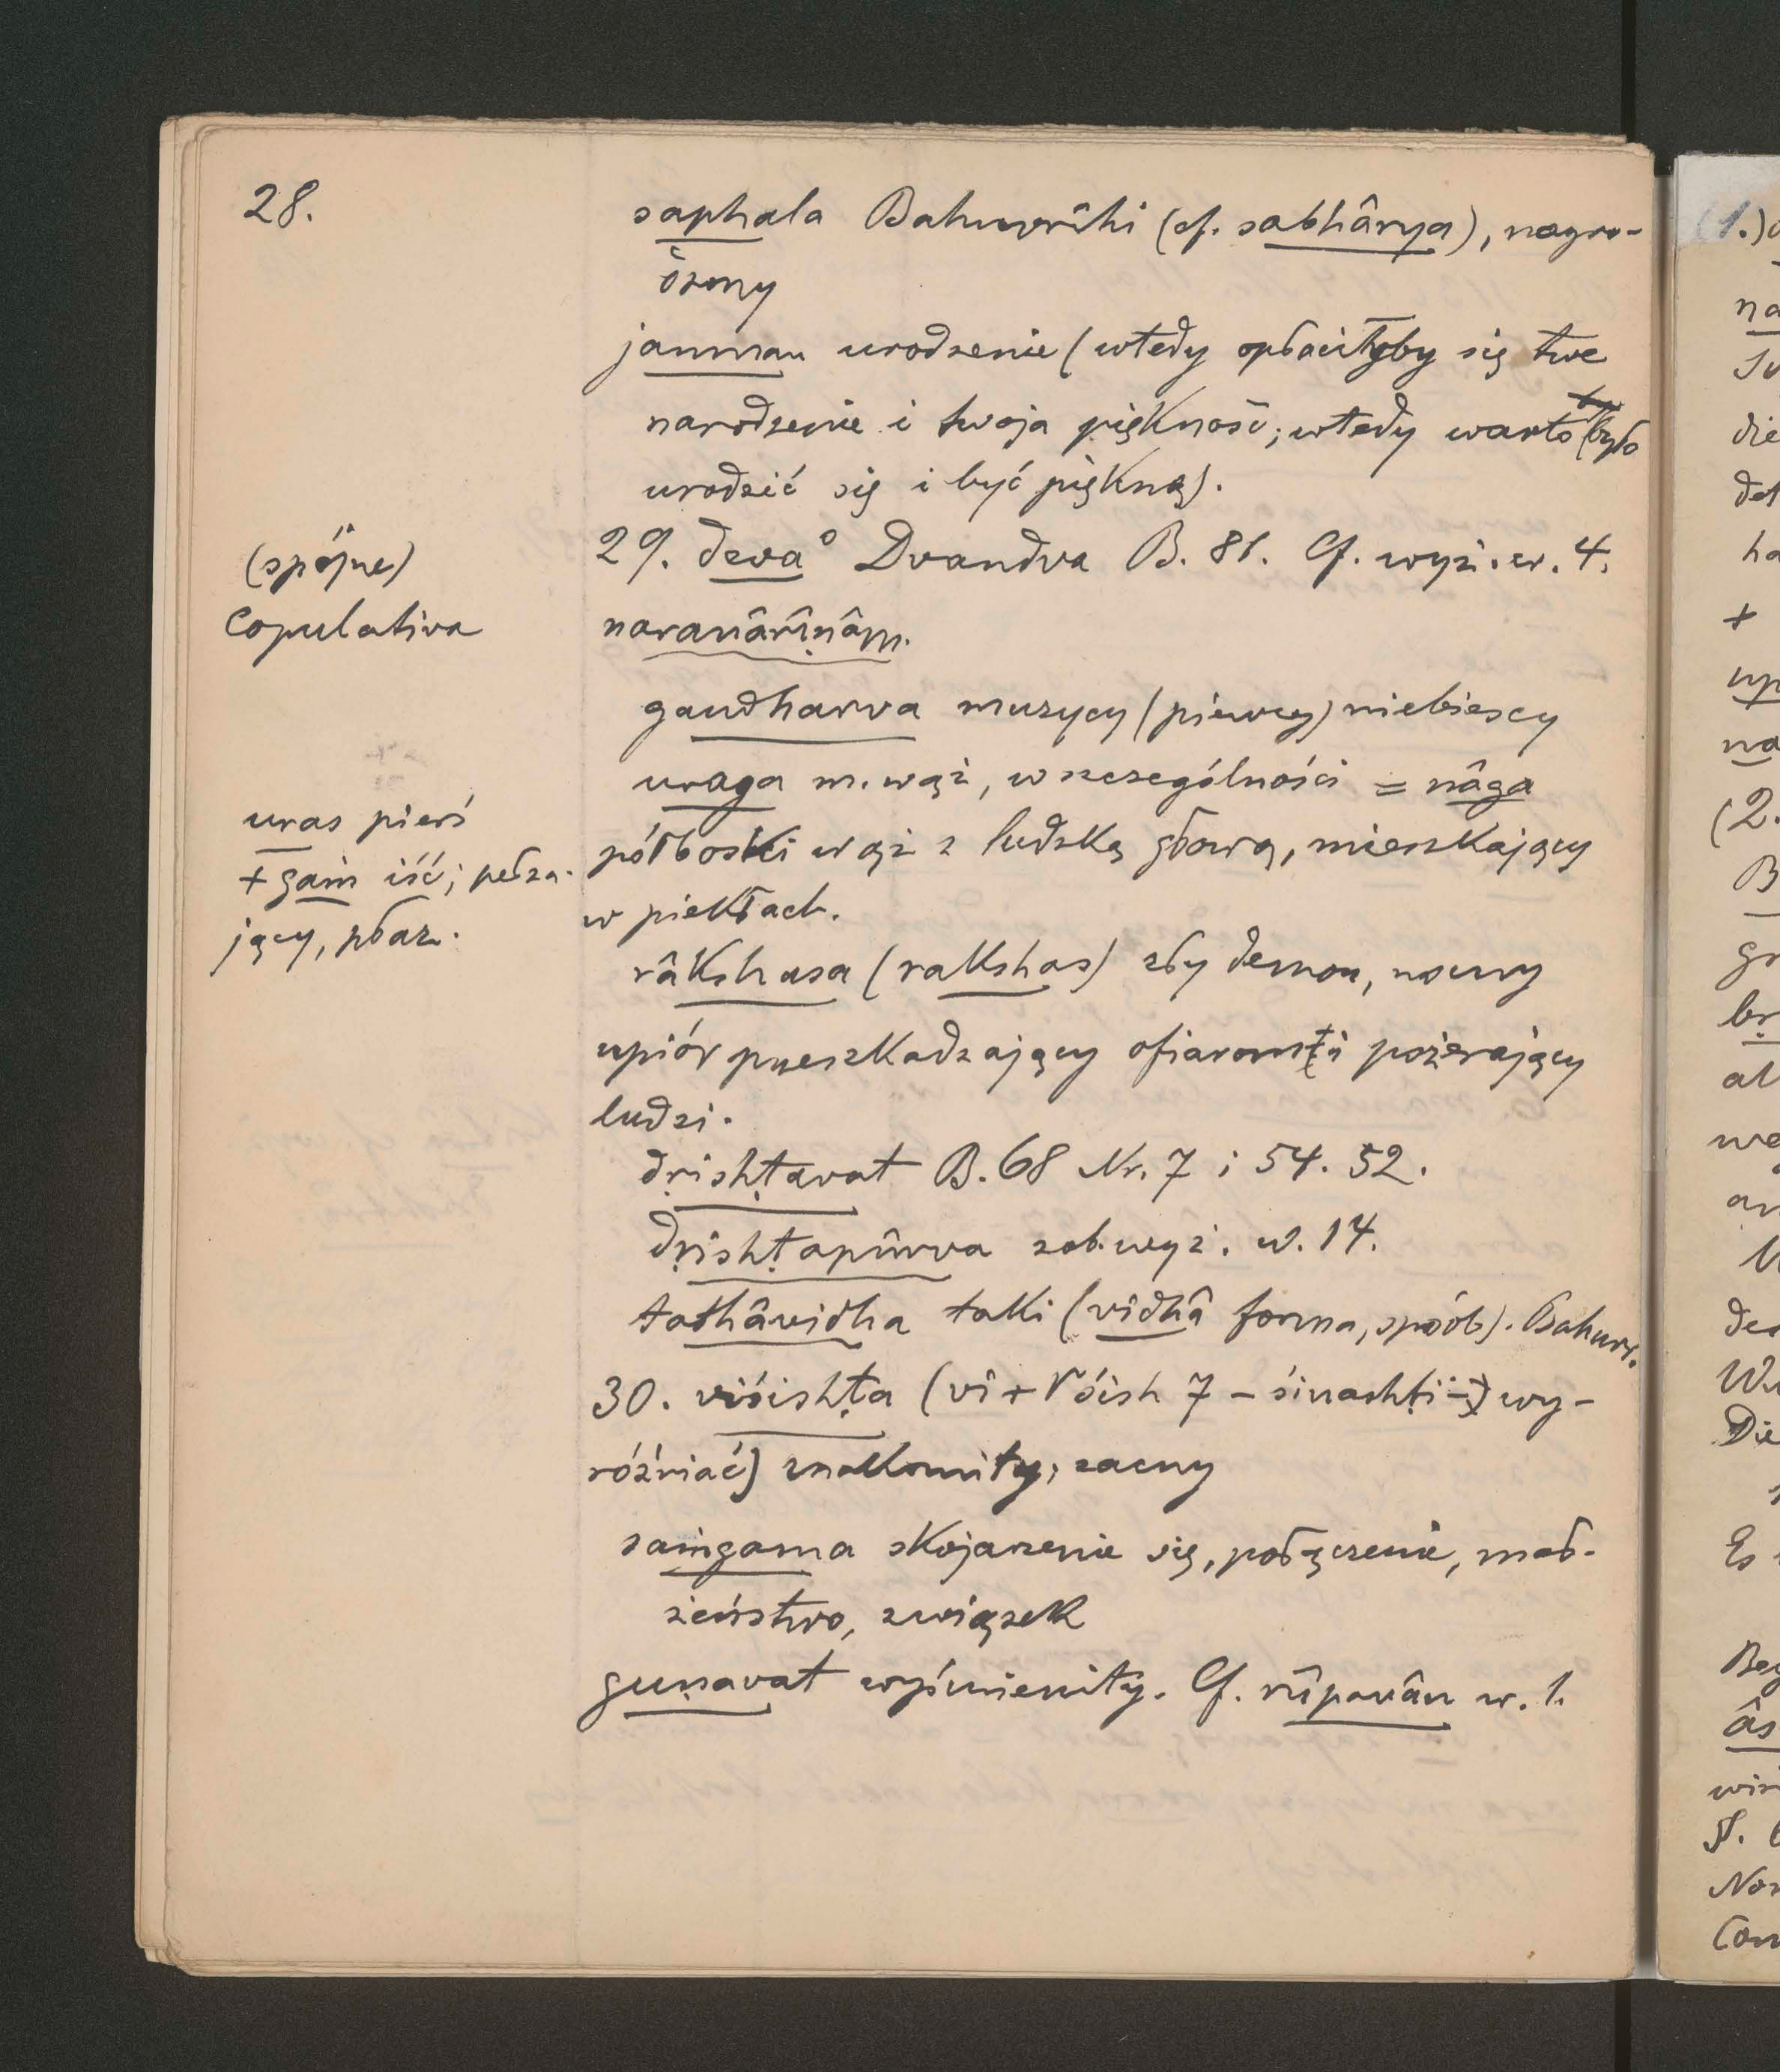 28.
saphala Bahuvrîhi (cf. sabhârya), nagro-
dzony
janman urodzenie (wtedy opłaciłoby się twe
narodzenie i twoja piękność; wtedy warto było
urodzić się i być piękną).
(spójne)
Copulativa
29. deva° Dvandva B. 81. Cf. wyż. w. 4.
naranârîṇâm.
gandharva muzycy (piewcy) niebiescy
uraga m. wąż, w szczególności = nâga
półboski wąż z ludzką głową, mieszkający
w piekłach.
uras pierś
+ gam iść; pełza-
jący, płaz.
râkshasa (rakshas) zły demon, nocny
upiór przeszkadzający ofiarom i pożerający
ludzi.
dṛishṭavat B. 68 Nr. 7 i 54. 52.
dṛishṭapûrva zob. wyż. w. 14.
tathâvidha taki (vidhâ forma, spósób). Bahuvr.
30. viśishṭa (vi + √śish 7 – śinashṭi –) wy-
różniać) znakomity, zacny
saṁgama skojarzenie się, połączenie, mał-
żeństwo, związek
guṇavat wyśmienity. Cf. rûpavân w. 1.
(1.)
na
die
det
ha
+
up
na
(2.
B
gr
br
al
we
an
der
Die
Es
Beg
âs
wir
Nor
Com